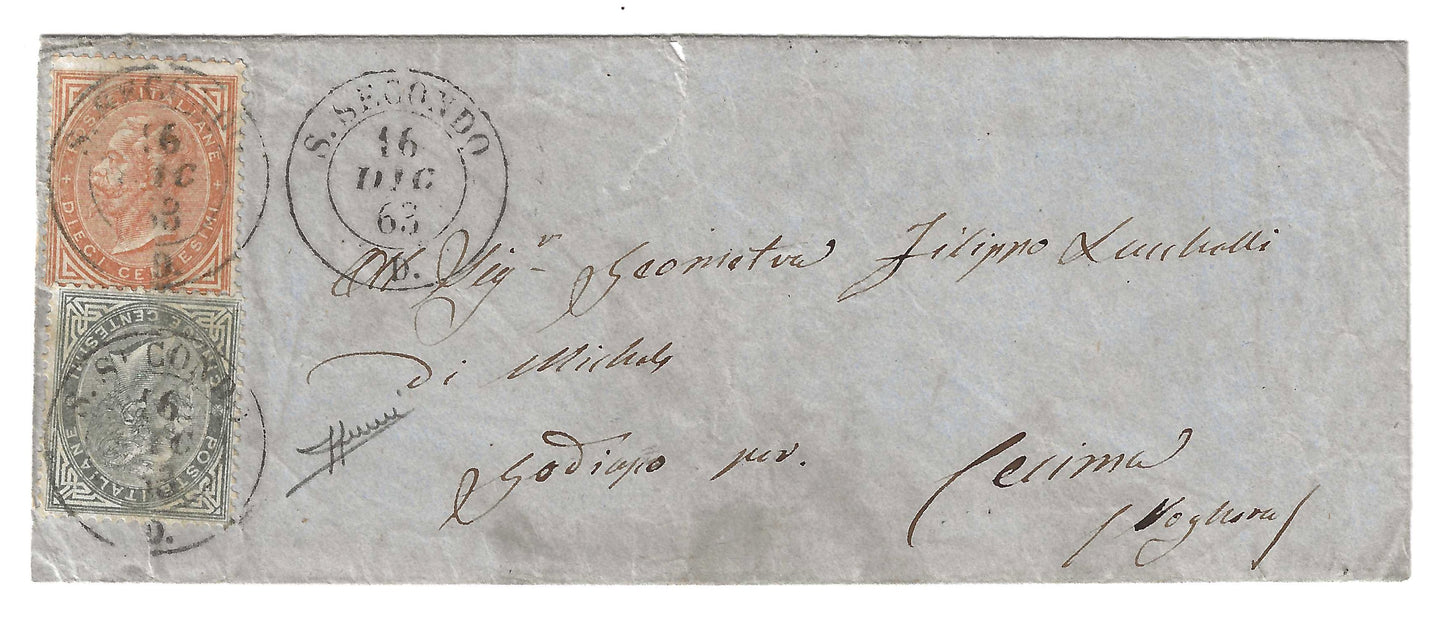 POSTE ITALIANE
+ DIECI CENTESIMI +
S. SECONDO
16
DIC
63
D.
S. SECONDO
16
DIC
63
D.
Al Sigr Geometra Filippo Lucchelli
di Michele
Godiapo per. Cecima
/ Voghera /
POSTE ITALIANE
CENTESIMI
S. SECONDO
16
DIC
D.